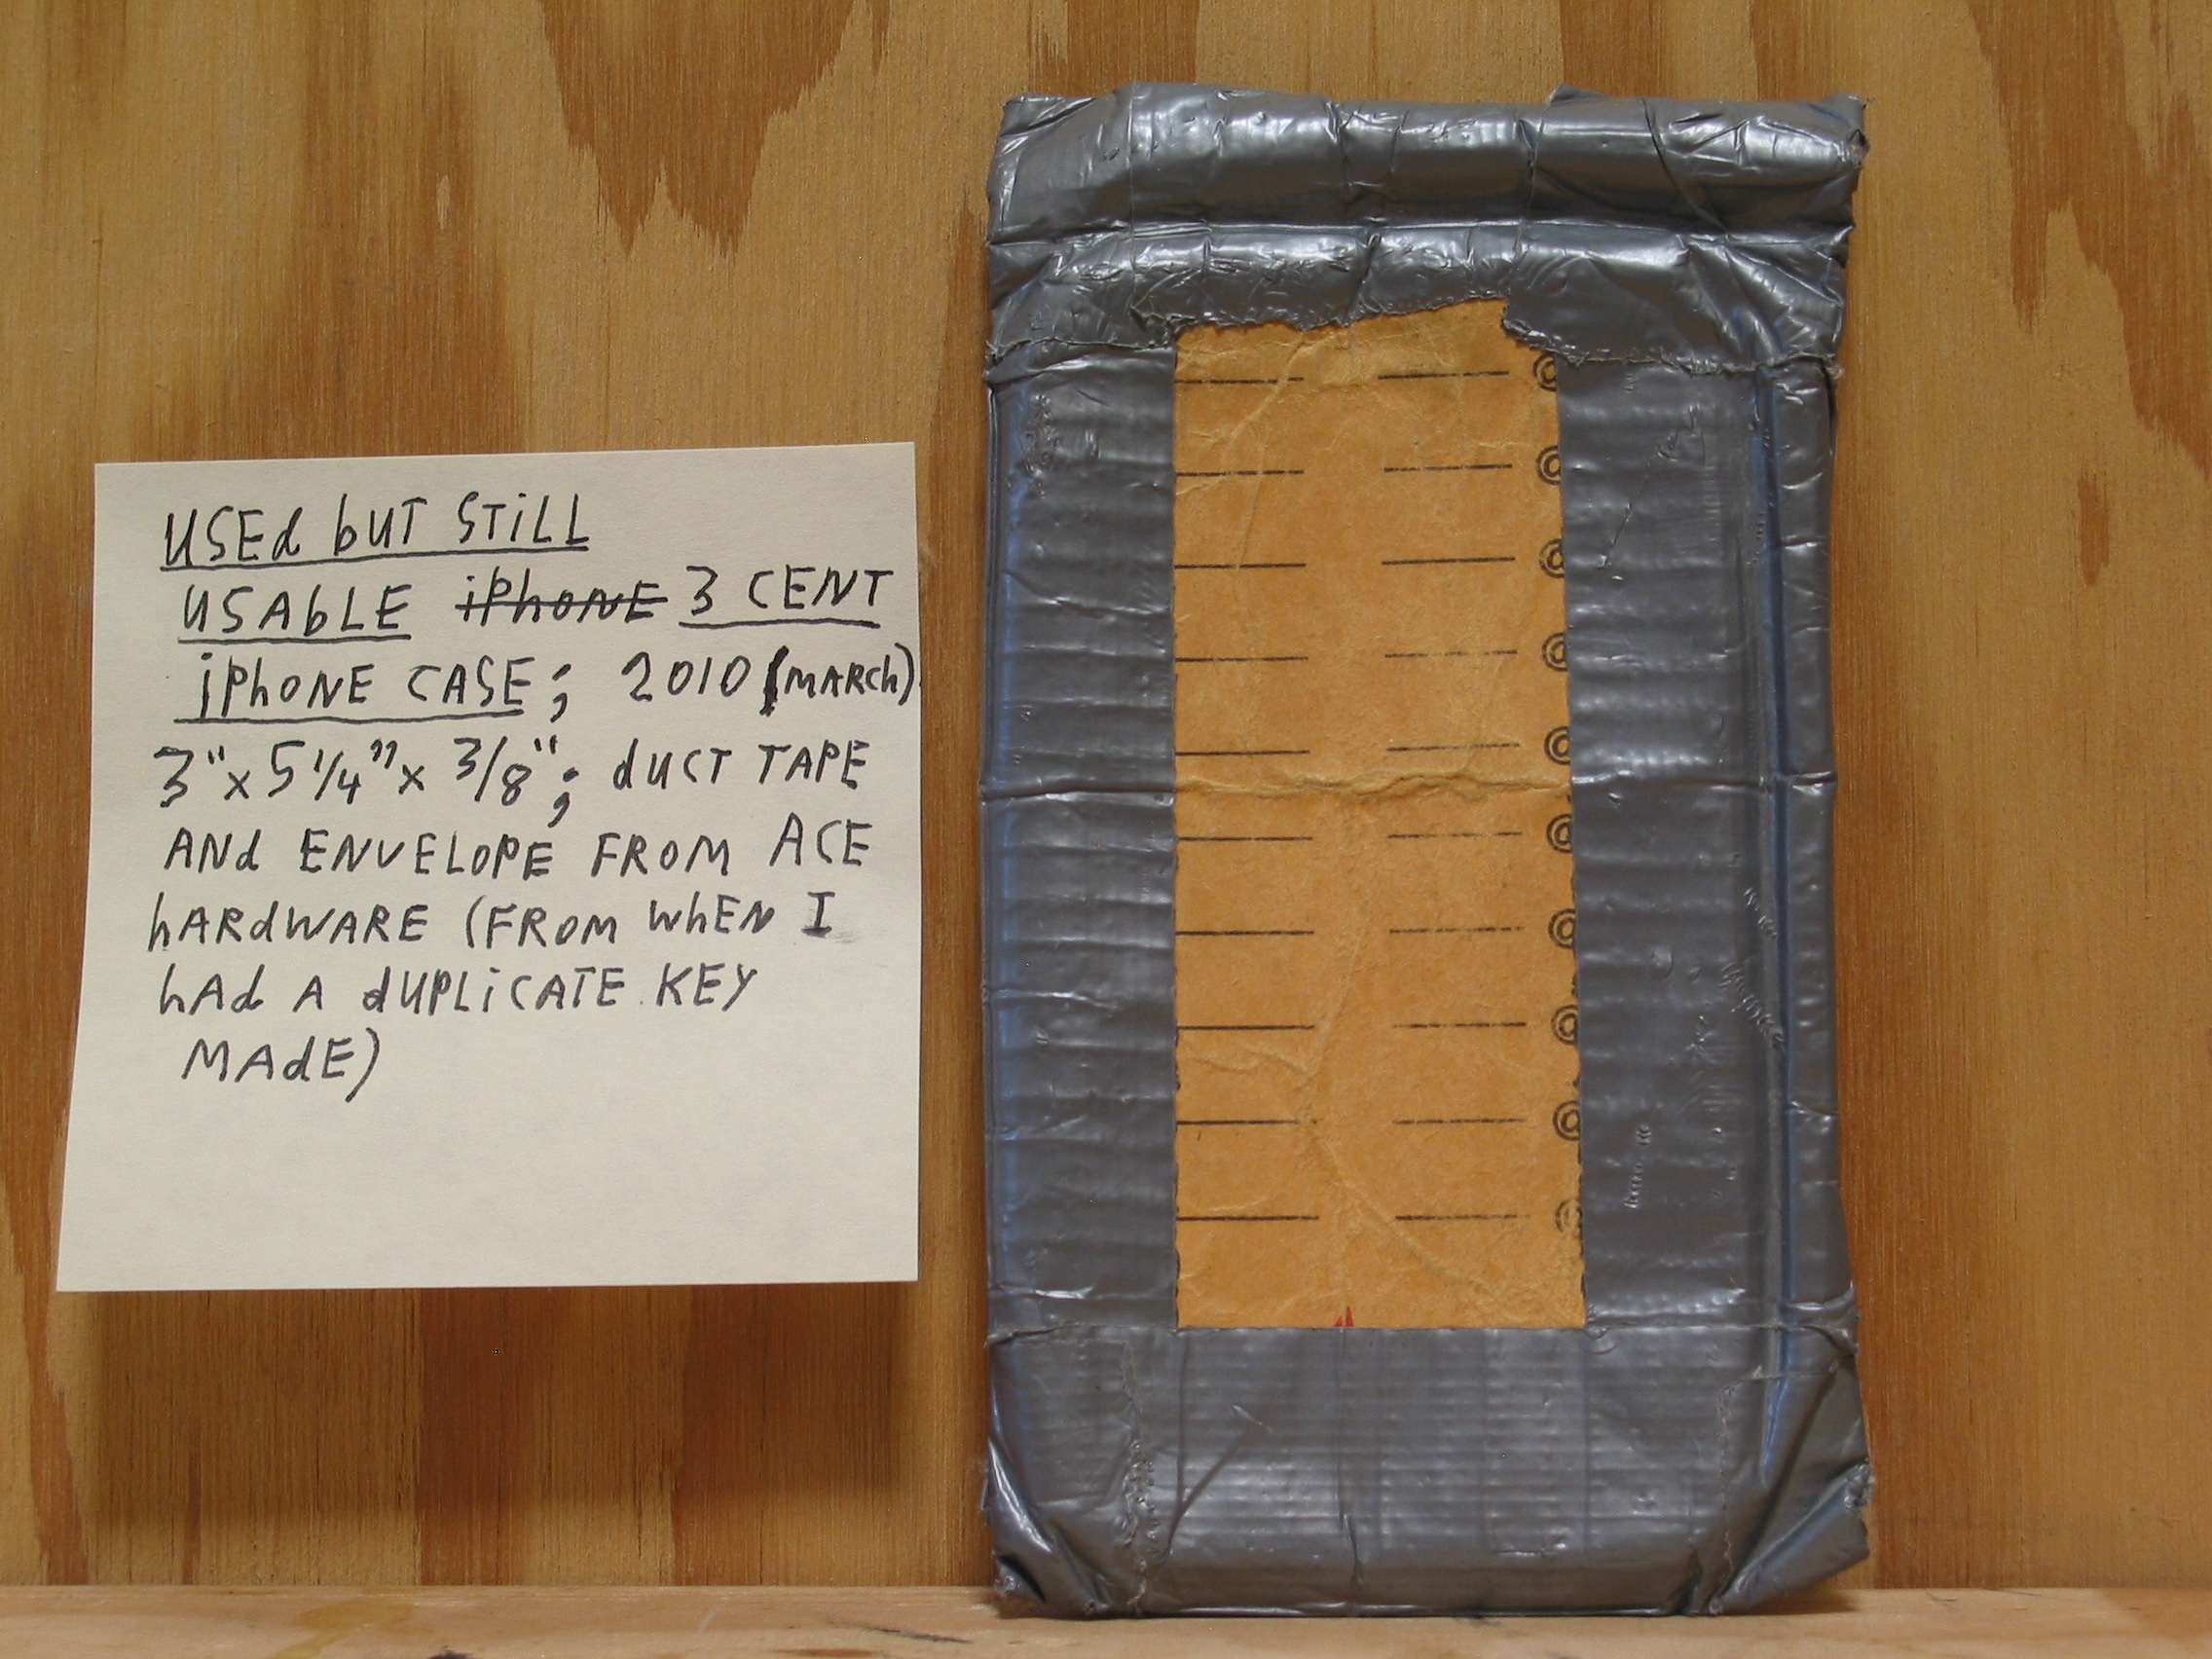 USEd bUT STiLL
USAbLE iPhONE 3 CENT
iPhONE CASE; 2010 (MARCh)
3" x 5 1/4" x 3/8"; dUCT TAPE
ANd ENVELOPE FROM ACE
hARdWARE (FROM WhEN I
hAd A dUPLiCATE KEY
MAdE)
@
@
@
@
@
@
@
@
@
@